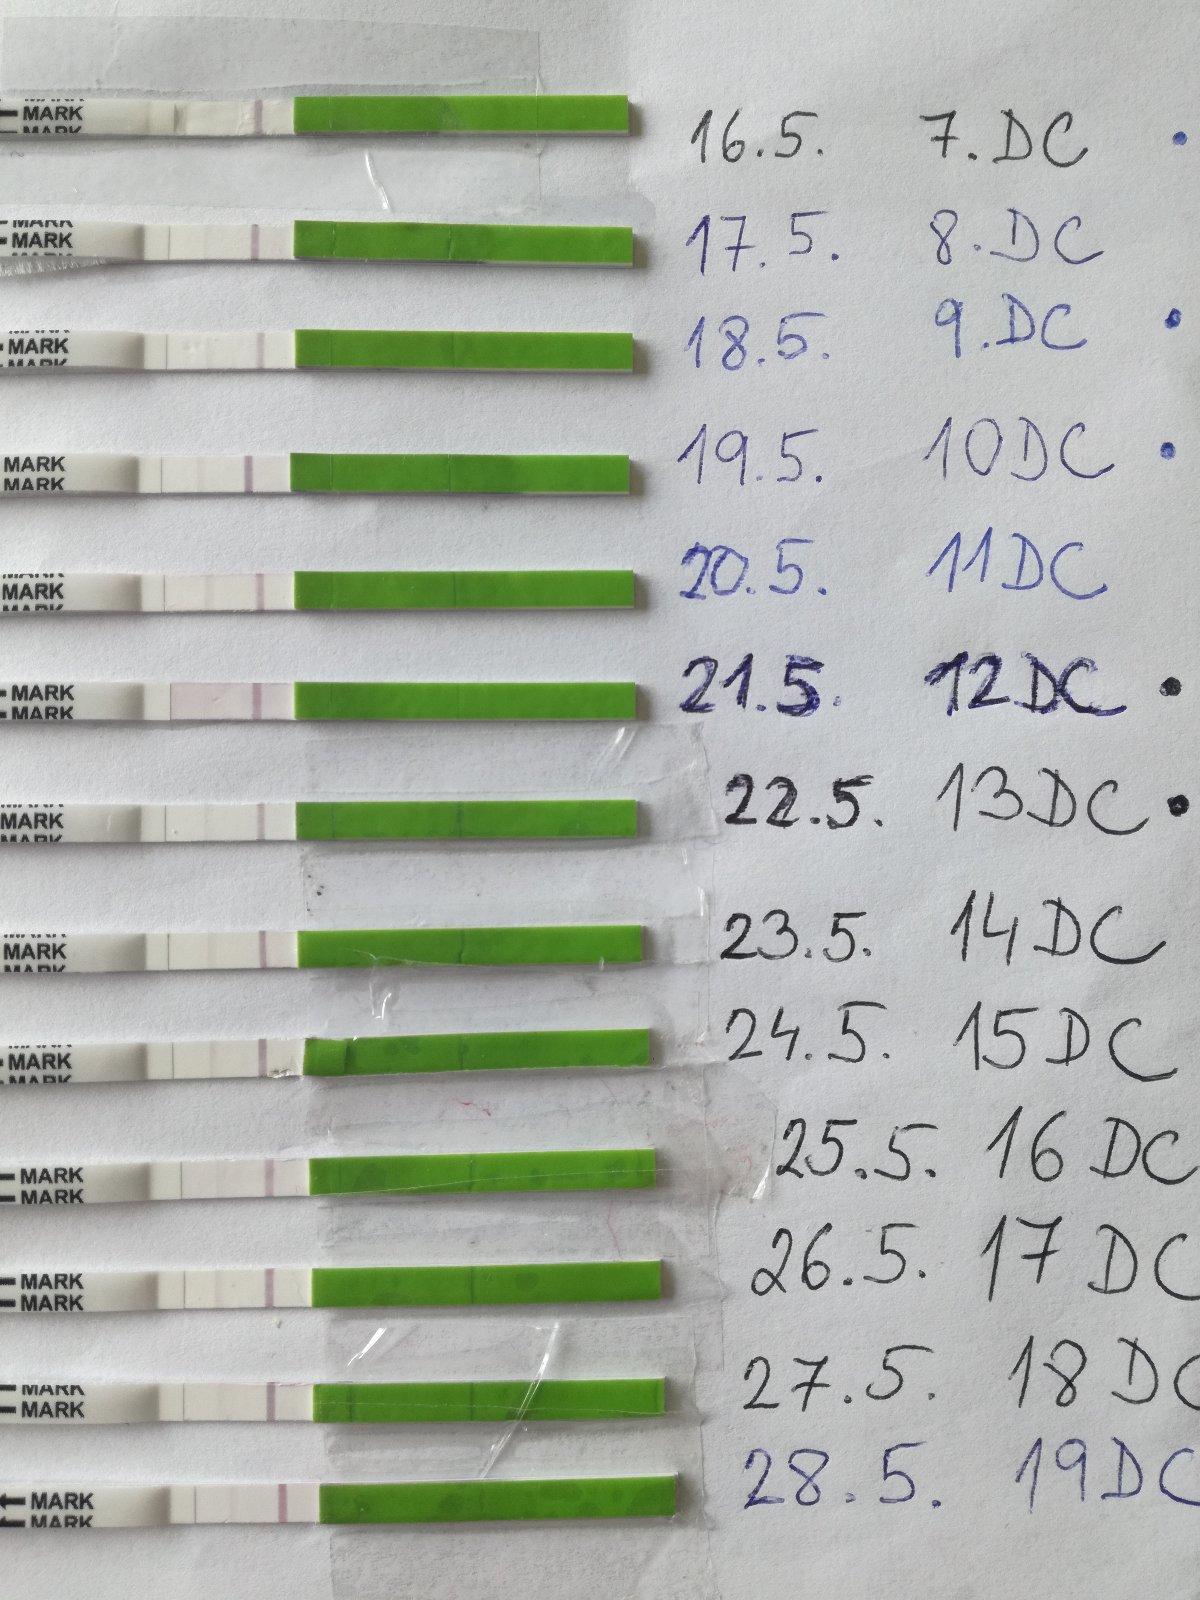 MARK
MARK
MARK
16.5. 7.DC
MARK
MARK
17.5. 8.DC
MARK
MARK
MARK
18.5. 9.DC
MARK
MARK
19.5. 10DC
MARK
MARK
MARK
20.5. 11DC
MARK
MARK
21.5. 12DC
MARK
MARK
MARK
22.5. 13DC
MARK
MARK
MARK
23.5. 14DC
MARK
MARK
MARK
24.5. 15DC
MARK
MARK
25.5. 16DC
MARK
MARK
26.5. 17DC
MARK
MARK
27.5. 18DC
MARK
MARK
28.5. 19DC